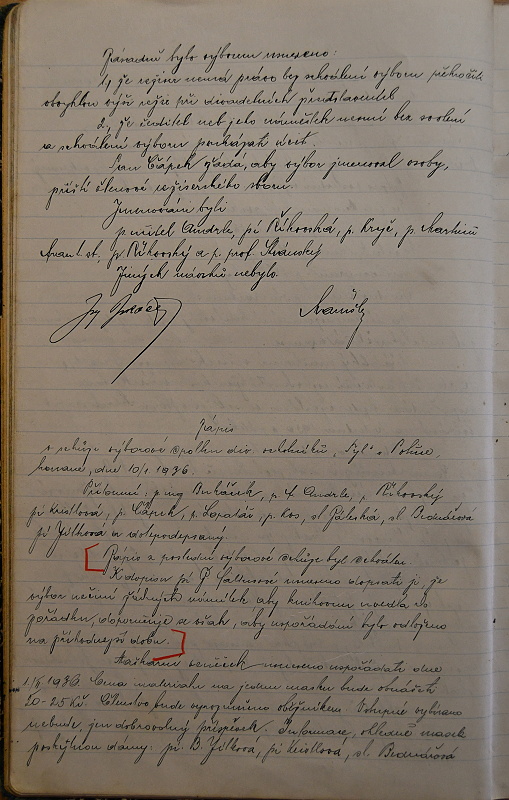 Zásadně bylo výborem usneseno:
1, že režiser nemá právo bez schválení výboru překročiti
obvyklou výši režie při divadelních představeních
2, že ředitel neb jeho náměstek nesmí bez svolení
a schválení výboru poukázat účet.
Pan Čápek žádá, aby výbor jmenoval osoby,
příští členové režiserského sboru.
Jmenováni byli
p. učitel Andrle, pí Říkovská, p. Kryč, p. Martinů
st. p. Říkovský a p. prof. Stránský
Jiných návrhů nebylo.
Zápis
o schůze výborové spolku div. ochotníků „Tyl" v Poličce,
konané, dne 10/1. 1936.
Přítomni: p. ing. p. f. Andrle, p. Říkovský
pí Kristlová, p. Čápek, p. p. Kos, sl. sl. Bednářová
pí Jílková a dolepodepsaný.
Zápis z poslední výborové schůze byl schválen
K dopisu pí P. usneseno dopsati jí, že
výbor nečiní žádných námitek aby knihovnu uvedla do
pořádku, doporučuje se však, aby uspořádání bylo odloženo
na příhodnější dobu.
Maškarní veneček usneseno uspořádati dne
1./II. 1936. Cena materialu na jednu masku bude obnášeti
20-25 Kč. Členstvo bude vyrozuměno oběžníkem. Vstupné vybíráno
nebude, jen dobrovolný příspěvek. Informace ohledně masek
poskytnou dámy: pí. B. Jílková, pí Kristlová, sl. Bednářová